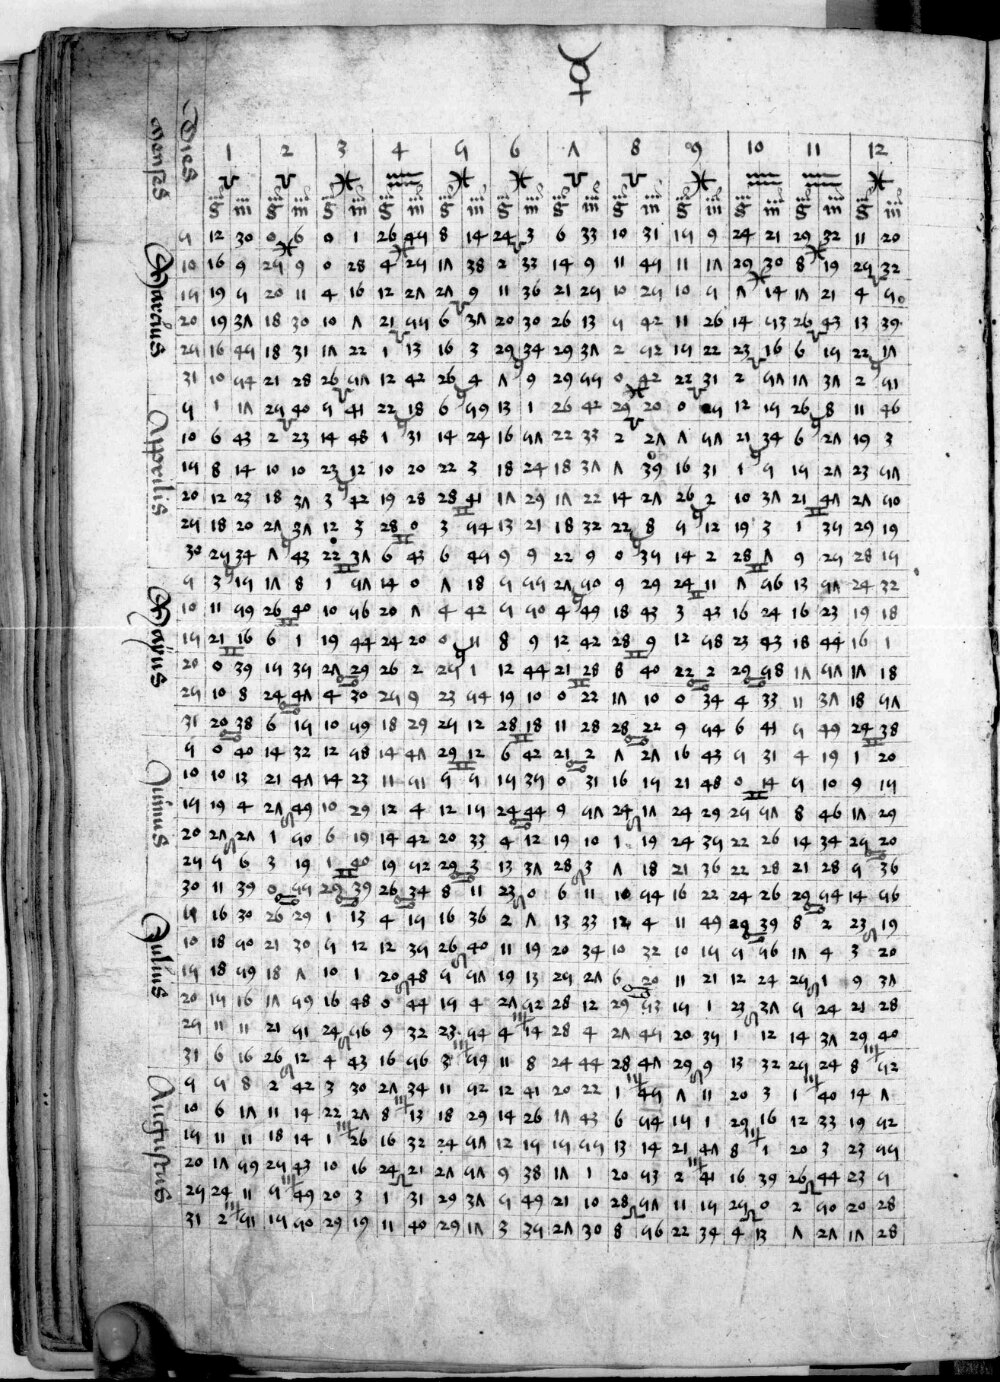 ☿
menses Dies 1 2 3 4 5 6 7 8 9 10 11 12
♈ ♈ ♓ ♒ ♓ ♓ ♈ ♈ ♓ ♒ ♒ ♓
g m g m g m g m g m g m g m g m g m g m g m g m
Marcius
5 12 30 0 6 0 1 26 45 8 14 24 3 6 33 10 31 15 9 24 21 29 32 11 20
10 16 9 25 9 0 28 4 25 17 38 2 33 14 9 11 45 11 17 29 30 8 19 25 32
15 19 5 20 11 4 16 12 27 27 9 11 36 21 25 10 25 10 5 7 14 17 21 4 50
20 19 37 18 30 10 7 21 55 6 37 20 30 26 13 5 42 11 26 14 53 26 43 13 39
25 16 45 18 31 17 22 1 13 16 3 29 34 29 37 2 52 15 22 23 16 6 15 22 17
31 10 54 21 28 26 57 12 42 26 4 7 9 29 55 0 42 22 31 2 57 17 37 2 51
Apprilis
5 1 17 25 40 5 41 22 18 6 59 13 1 26 42 29 20 0 12 15 26 8 11 46
10 6 43 2 23 14 48 1 31 14 24 16 57 22 33 2 27 7 57 21 34 6 27 19 3
15 8 14 10 10 23 12 10 20 22 3 18 24 18 37 7 39 16 31 1 5 15 27 23 57
20 12 23 18 37 3 42 19 28 28 41 17 29 17 22 14 27 26 2 10 37 21 47 27 50
25 18 20 27 37 12 3 28 0 3 54 13 21 18 32 22 8 5 12 19 3 1 35 29 19
30 25 34 7 43 22 37 6 43 6 45 9 9 22 9 0 35 14 2 28 7 9 25 28 15
Mayus
5 3 15 17 8 1 57 14 0 7 18 5 55 27 50 9 29 24 11 7 56 13 57 24 32
10 11 59 26 40 10 56 20 7 4 42 5 50 4 49 18 43 3 43 16 24 16 23 19 18
15 21 16 6 1 19 44 24 20 0 11 8 9 12 42 28 9 12 58 23 43 18 44 16 1
20 0 39 15 35 27 29 26 2 25 1 12 44 21 28 8 40 22 2 29 58 17 57 17 18
25 10 8 24 47 4 30 25 9 23 54 19 10 0 22 17 10 0 34 4 33 11 37 18 57
31 20 38 6 15 10 59 18 29 25 12 28 18 11 28 28 22 9 54 6 41 5 49 24 38
Junius
5 0 40 14 32 12 58 14 47 29 12 6 42 21 2 7 27 16 43 5 31 4 19 1 20
10 10 13 21 47 14 23 11 51 5 5 15 35 0 31 16 15 21 48 0 14 5 10 9 15
15 19 4 27 49 10 29 12 4 12 15 24 44 9 57 24 17 24 29 25 57 8 46 17 29
20 27 27 1 50 6 19 14 42 20 33 4 12 19 10 1 19 24 35 22 26 14 34 25 20
25 5 6 3 19 1 40 19 52 29 3 13 37 28 3 7 18 21 36 22 28 21 28 5 36
30 11 39 0 55 29 39 26 34 8 11 23 0 6 11 10 54 16 22 24 26 29 54 14 56
Julius
5 16 30 26 29 1 13 4 15 16 36 2 7 13 33 12 4 11 49 29 39 8 2 23 19
10 18 50 21 30 5 12 12 35 26 40 11 19 20 34 10 32 10 15 5 56 17 4 3 20
15 18 59 18 7 10 1 20 48 5 57 19 13 25 27 6 20 11 21 12 24 25 1 9 37
20 15 16 17 59 16 48 0 44 15 4 27 52 28 12 29 53 15 1 23 37 5 24 21 28
25 11 11 21 51 24 56 9 32 23 54 4 14 28 4 27 45 20 35 1 12 14 37 29 40
31 6 16 26 12 4 43 16 56 3 59 11 8 24 44 28 47 29 9 13 32 25 24 8 52
Augustus
5 5 8 2 42 3 30 27 34 11 52 12 41 20 22 1 45 7 11 20 3 1 40 14 7
10 6 17 11 14 22 27 8 13 18 29 14 26 17 43 6 54 15 1 29 16 12 33 19 52
15 11 11 18 14 1 26 16 32 24 57 12 15 15 55 13 14 21 47 8 1 20 3 23 55
20 17 59 25 43 10 16 24 21 27 57 9 38 17 1 20 53 2 41 16 39 26 44 23 5
25 24 11 5 49 20 3 1 31 29 37 5 49 21 10 28 57 11 15 25 0 2 50 20 28
31 2 51 15 50 29 19 11 40 29 17 3 35 27 30 8 56 22 34 4 13 7 27 17 28